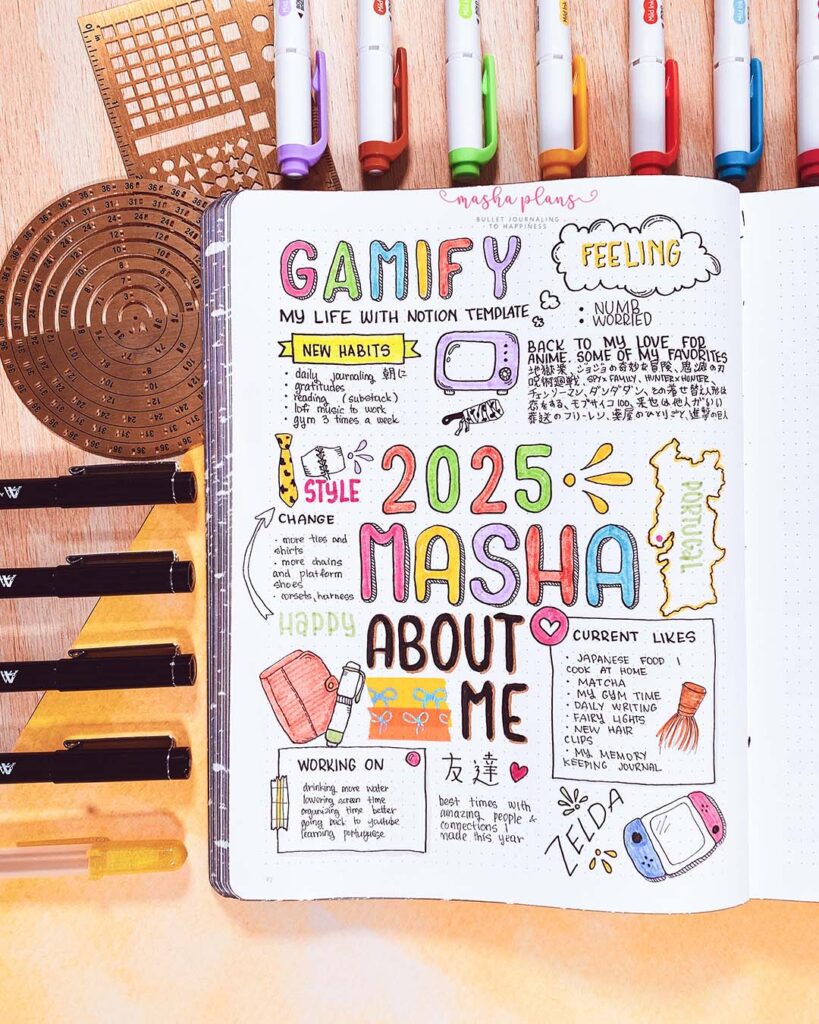 masha plans
BULLET JOURNALING
TO HAPPINESS
GAMIFY
MY LIFE WITH NOTION TEMPLATE
FEELING
• NUMB
• WORRIED
NEW HABITS
• daily journaling 朝に
• gratitudes
• reading (substack)
• lofi music to work
• gym 3 times a week
BACK TO MY LOVE FOR
ANIME. SOME OF MY FAVORITES
地獄楽, ジョジョの奇妙な冒険, 鬼滅の刃
呪術廻戦, SPY x FAMILY, HUNTER x HUNTER,
チェンソーマン, ダンダダン, その着せ替え人形は
恋をする, モブサイコ100, 来世は他人がいい
葬送のフリーレン, 薬屋のひとりごと, 進撃の巨人
STYLE
2025
MASHA
ABOUT
ME
PORTUGAL
CHANGE
• more ties and
shirts
• more chains
and platform
shoes
• corsets, harness
Happy
CURRENT LIKES
• JAPANESE FOOD I
COOK AT HOME
• MATCHA
• MY GYM TIME
• DAILY WRITING
• FAIRY LIGHTS
• NEW HAIR
CLIPS
• MY MEMORY
KEEPING JOURNAL
WORKING ON
drinking more water
lowering screen time
organizing time better
going back to youtube
learning portuguese
友達
best times with
amazing people &
connections I
made this year
ZELDA